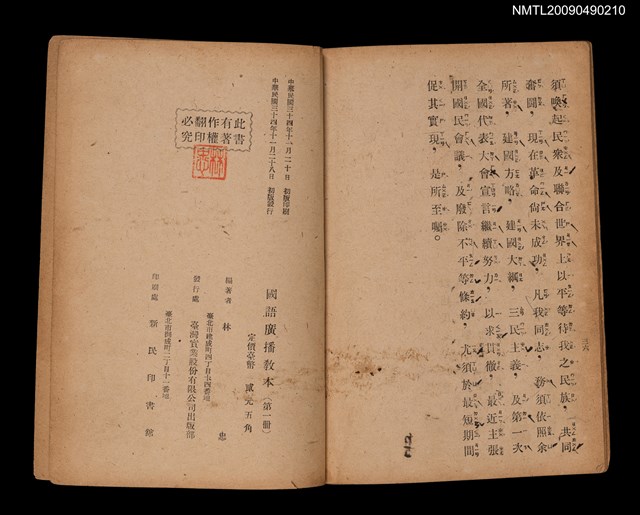 NMTL20090490210
須喚起民衆及聯合世界上以平等待我之民族，共同
奮鬪，現在革命尙未成功，凡我同志，務須依照余
所著，建國方略，建國大綱，三民主義，及第一次
全國代表大會宣言繼續努力，以求貫徹，最近主張
開國民會議，及廢除不平等條約，尤須於最短期間
促其實現，是所至囑。
中華民國三十四年十一月二十日 初版印刷
中華民國三十四年十一月二十八日 初版發行
此書
有著
作權
翻印
必究
國語廣播敎本（第一册）
定價臺幣 貳元五角
編著者 林 忠
臺北市
發行處 臺灣實業股份有限公司出版部
臺北市 二丁目十一番地
印刷處 新民印書館